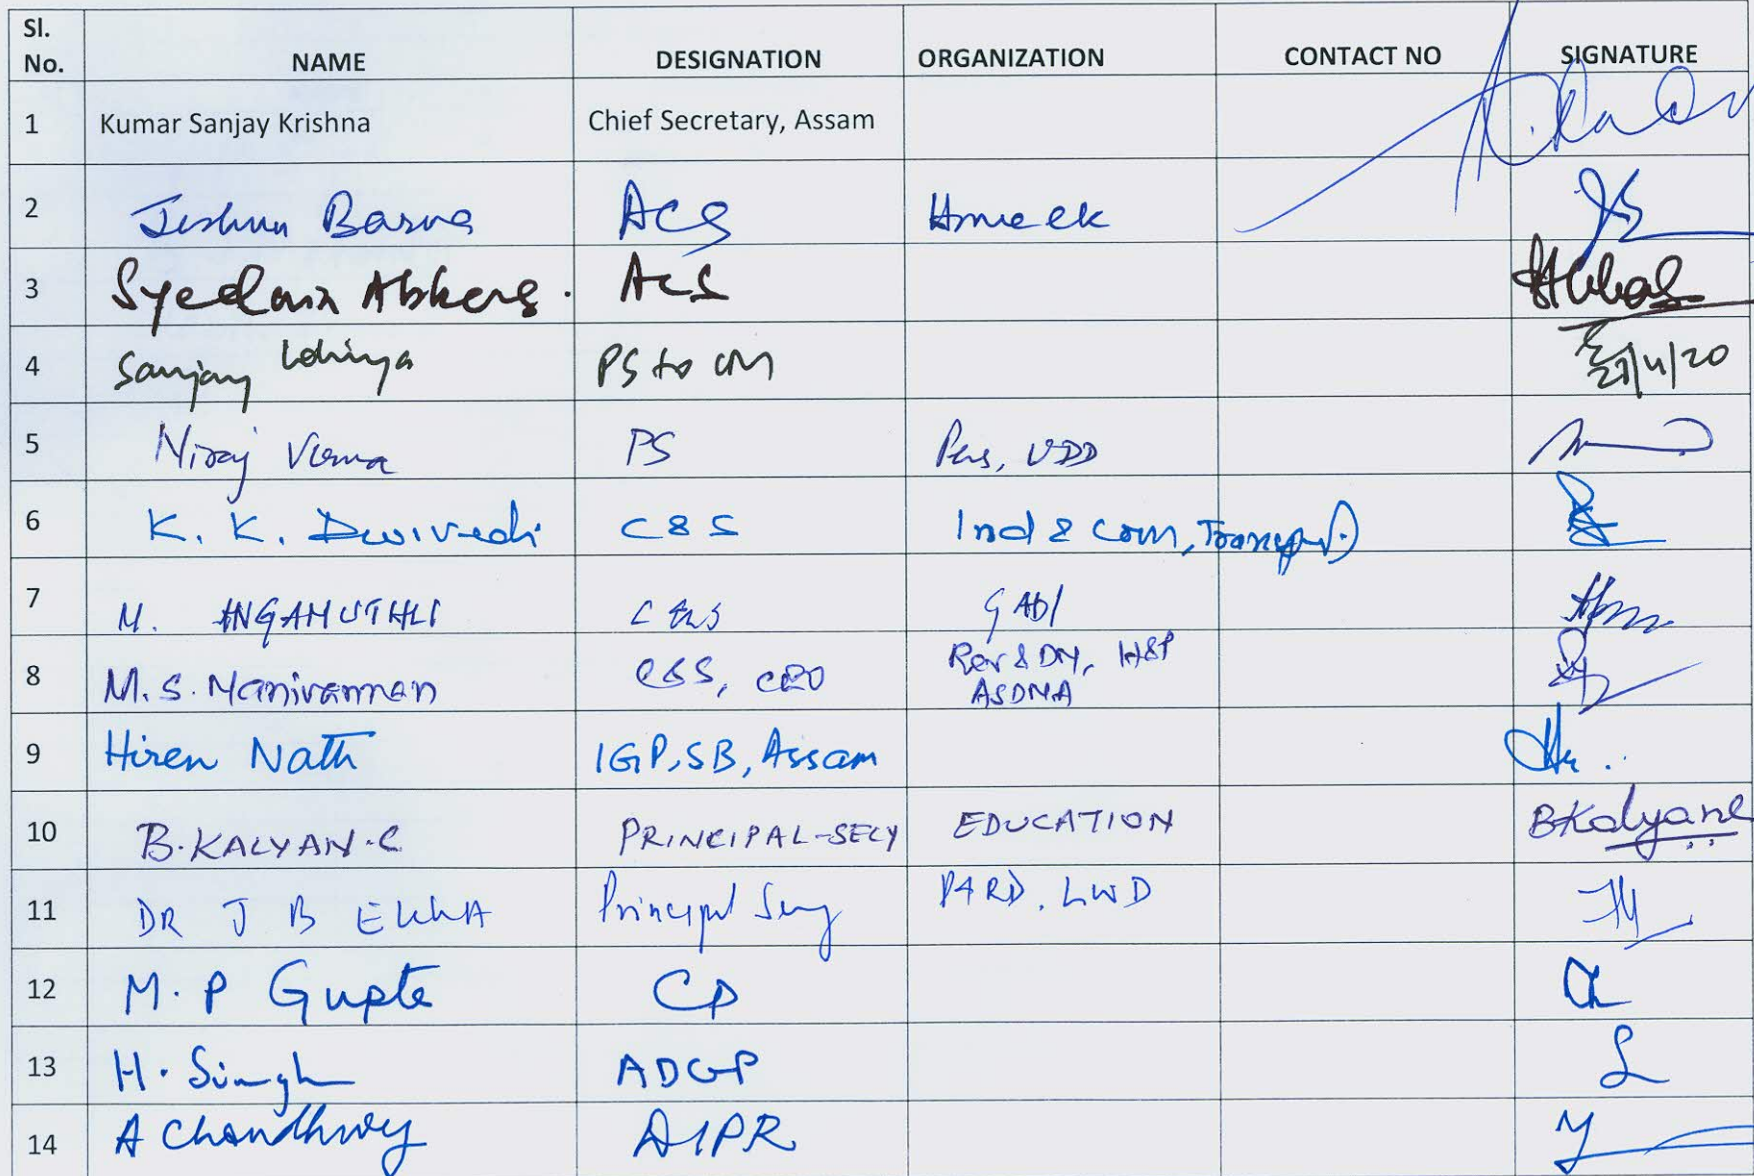 Sl. No. NAME DESIGNATION ORGANIZATION CONTACT NO SIGNATURE
1 Kumar Sanjay Krishna Chief Secretary, Assam
2 Barua ACS
3 Syedain Abbas ACS
4 Sanjay Lohiya PS to CM 27/4/20
5 Niraj Verma PS UDD
6 K. K. Dwivedi C&S Ind & Com, Transport
7 M. ANGAMUTHU C&S GAD
8 M.S. Manivannan C&S, CEO Rev & DM,
ASDMA
9 Hiren Nath IGP, SB, Assam
10 B.KALYAN.C PRINCIPAL-SECY EDUCATION BKalyanc
11 DR J B EKKA Principal Secy
12 M.P Gupta CP
13 H. Singh ADGP
14 A Choudhury DIPR